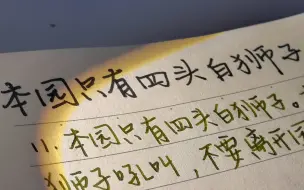 本园只有四头白狮子
11.本园只有四头白狮子。
狮子吼叫，不要离开园